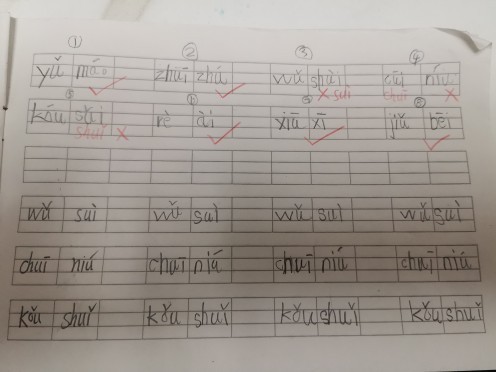 ① ② ③ ④
yǔ máo zhuī zhú wǔ shài cuī niú
× suì chuī ×
kóu sǔi rè ài xiū xī jiǔ bēi
shuǐ ×
wǔ suì wǔ suì wǔ suì wǔ suì
chuī niú chuī niú chuī niú chuī niú
kǒu shuǐ kǒu shuǐ kǒu shuǐ kǒu shuǐ